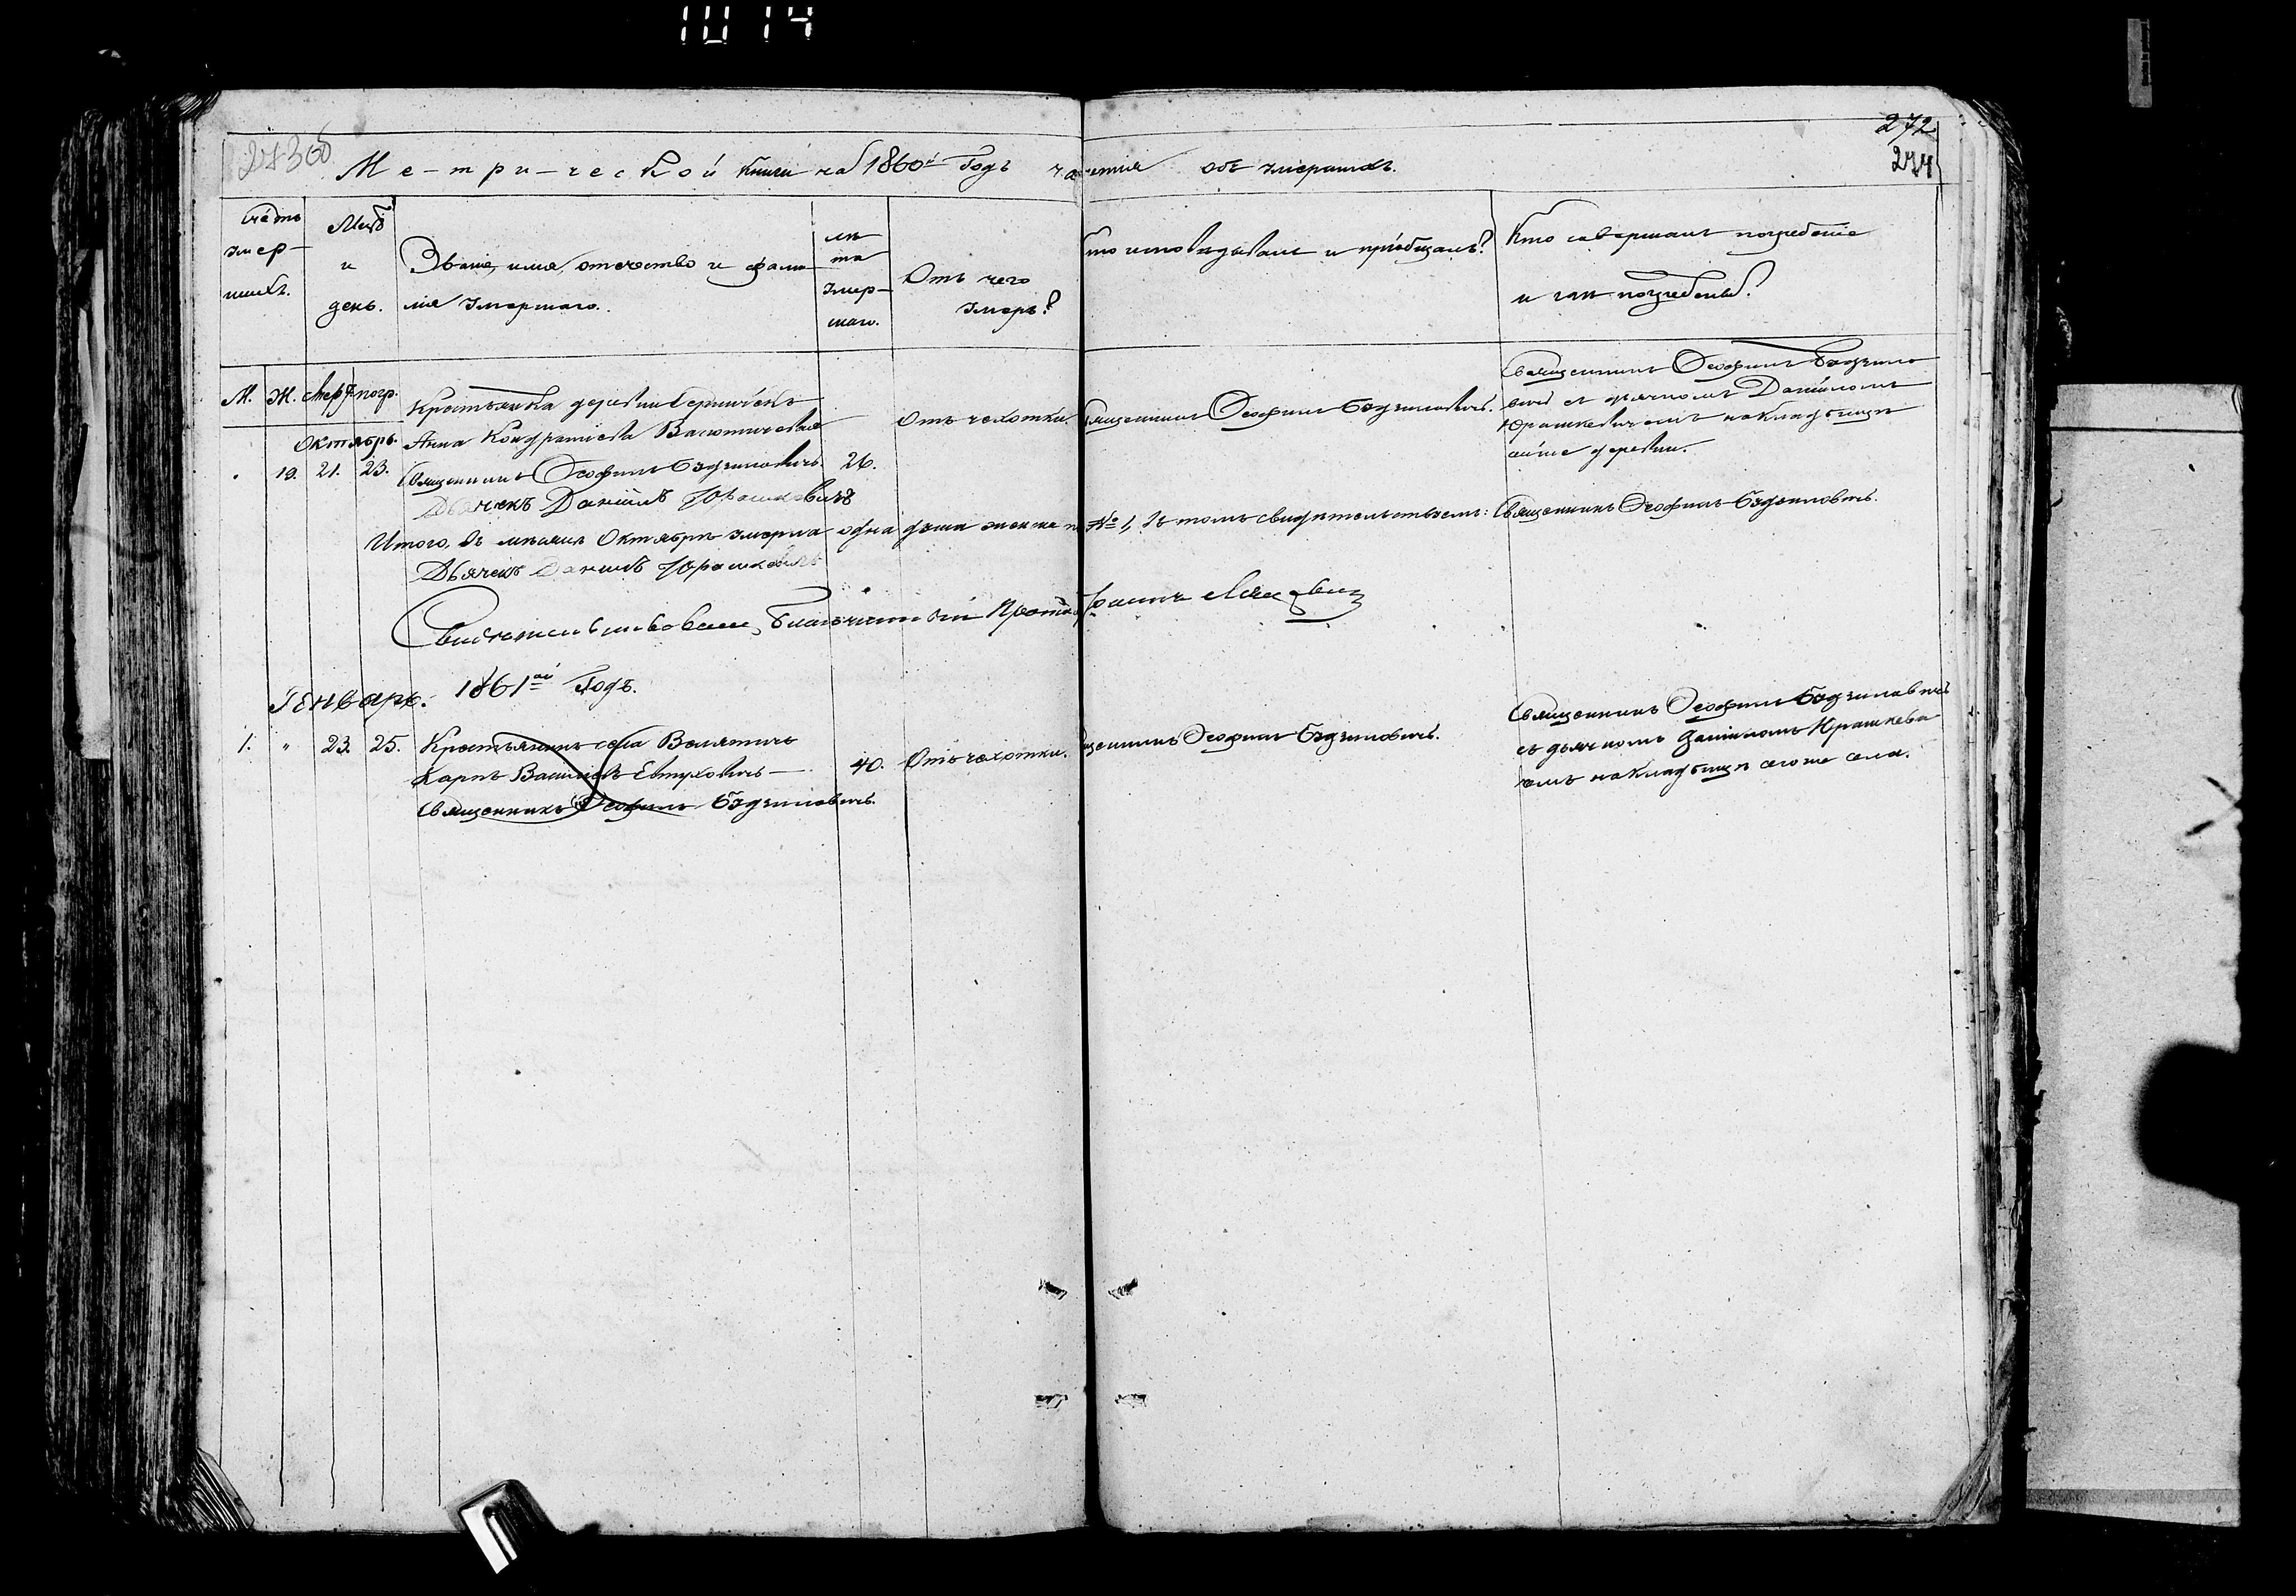 1014
272
274
273об
Метрической книги на 1860й Годъ часть 3тія объ умершихъ.
Счетъ умер-шихъ.
Мсцъ и день.
Званіе, имя, отчество и фами-
лія умершаго.
лѣта умер-шаго.
Отъ чего умеръ?
Кто исповѣдывалъ и пріобщалъ?
Кто совершалъ погребеніе
и гдѣ погребены?
М. Ж. смер. погр.
Октябрь.
19. 21. 23.
Крестьянка деревни
Анна Кондратіева
Священникъ Ѳеофилъ Бздзиловичъ.
Дьячекъ Даніилъ Юрашкевичъ
26.
Отъ чахотки.
Священникъ Ѳеофилъ Бздзиловичъ.
Священникъ Ѳеофилъ Бздзило
вичъ съ дьячкомъ Даніиломъ
Юрашкевичемъ на кладбищѣ
деревни.
Итого, въ мѣсяцѣ Октябрѣ умерла одна душа женска № 1, въ томъ свидѣтельствуемъ: Священникъ Ѳеофилъ Бздзиловичъ.
Дьячекъ Даніилъ Юрашкевичъ
Свидетельствовалъ, Благочинный Протоі Іоаннъ
1861ай Годъ.
Генварь.
1. " 23. 25.
Крестьянинъ села Велятичъ
Карпъ Васильевъ Евтуховичъ
Священникъ Ѳеофилъ Бздзиловичъ.
40.
Отъ чахотки.
Священникъ Ѳеофилъ Бздзиловичъ.
Священникъ Ѳеофилъ Бздзиловичъ
съ дьячкомъ Даніиломъ Юрашкеви
чемъ на кладбищѣ сегоже села.